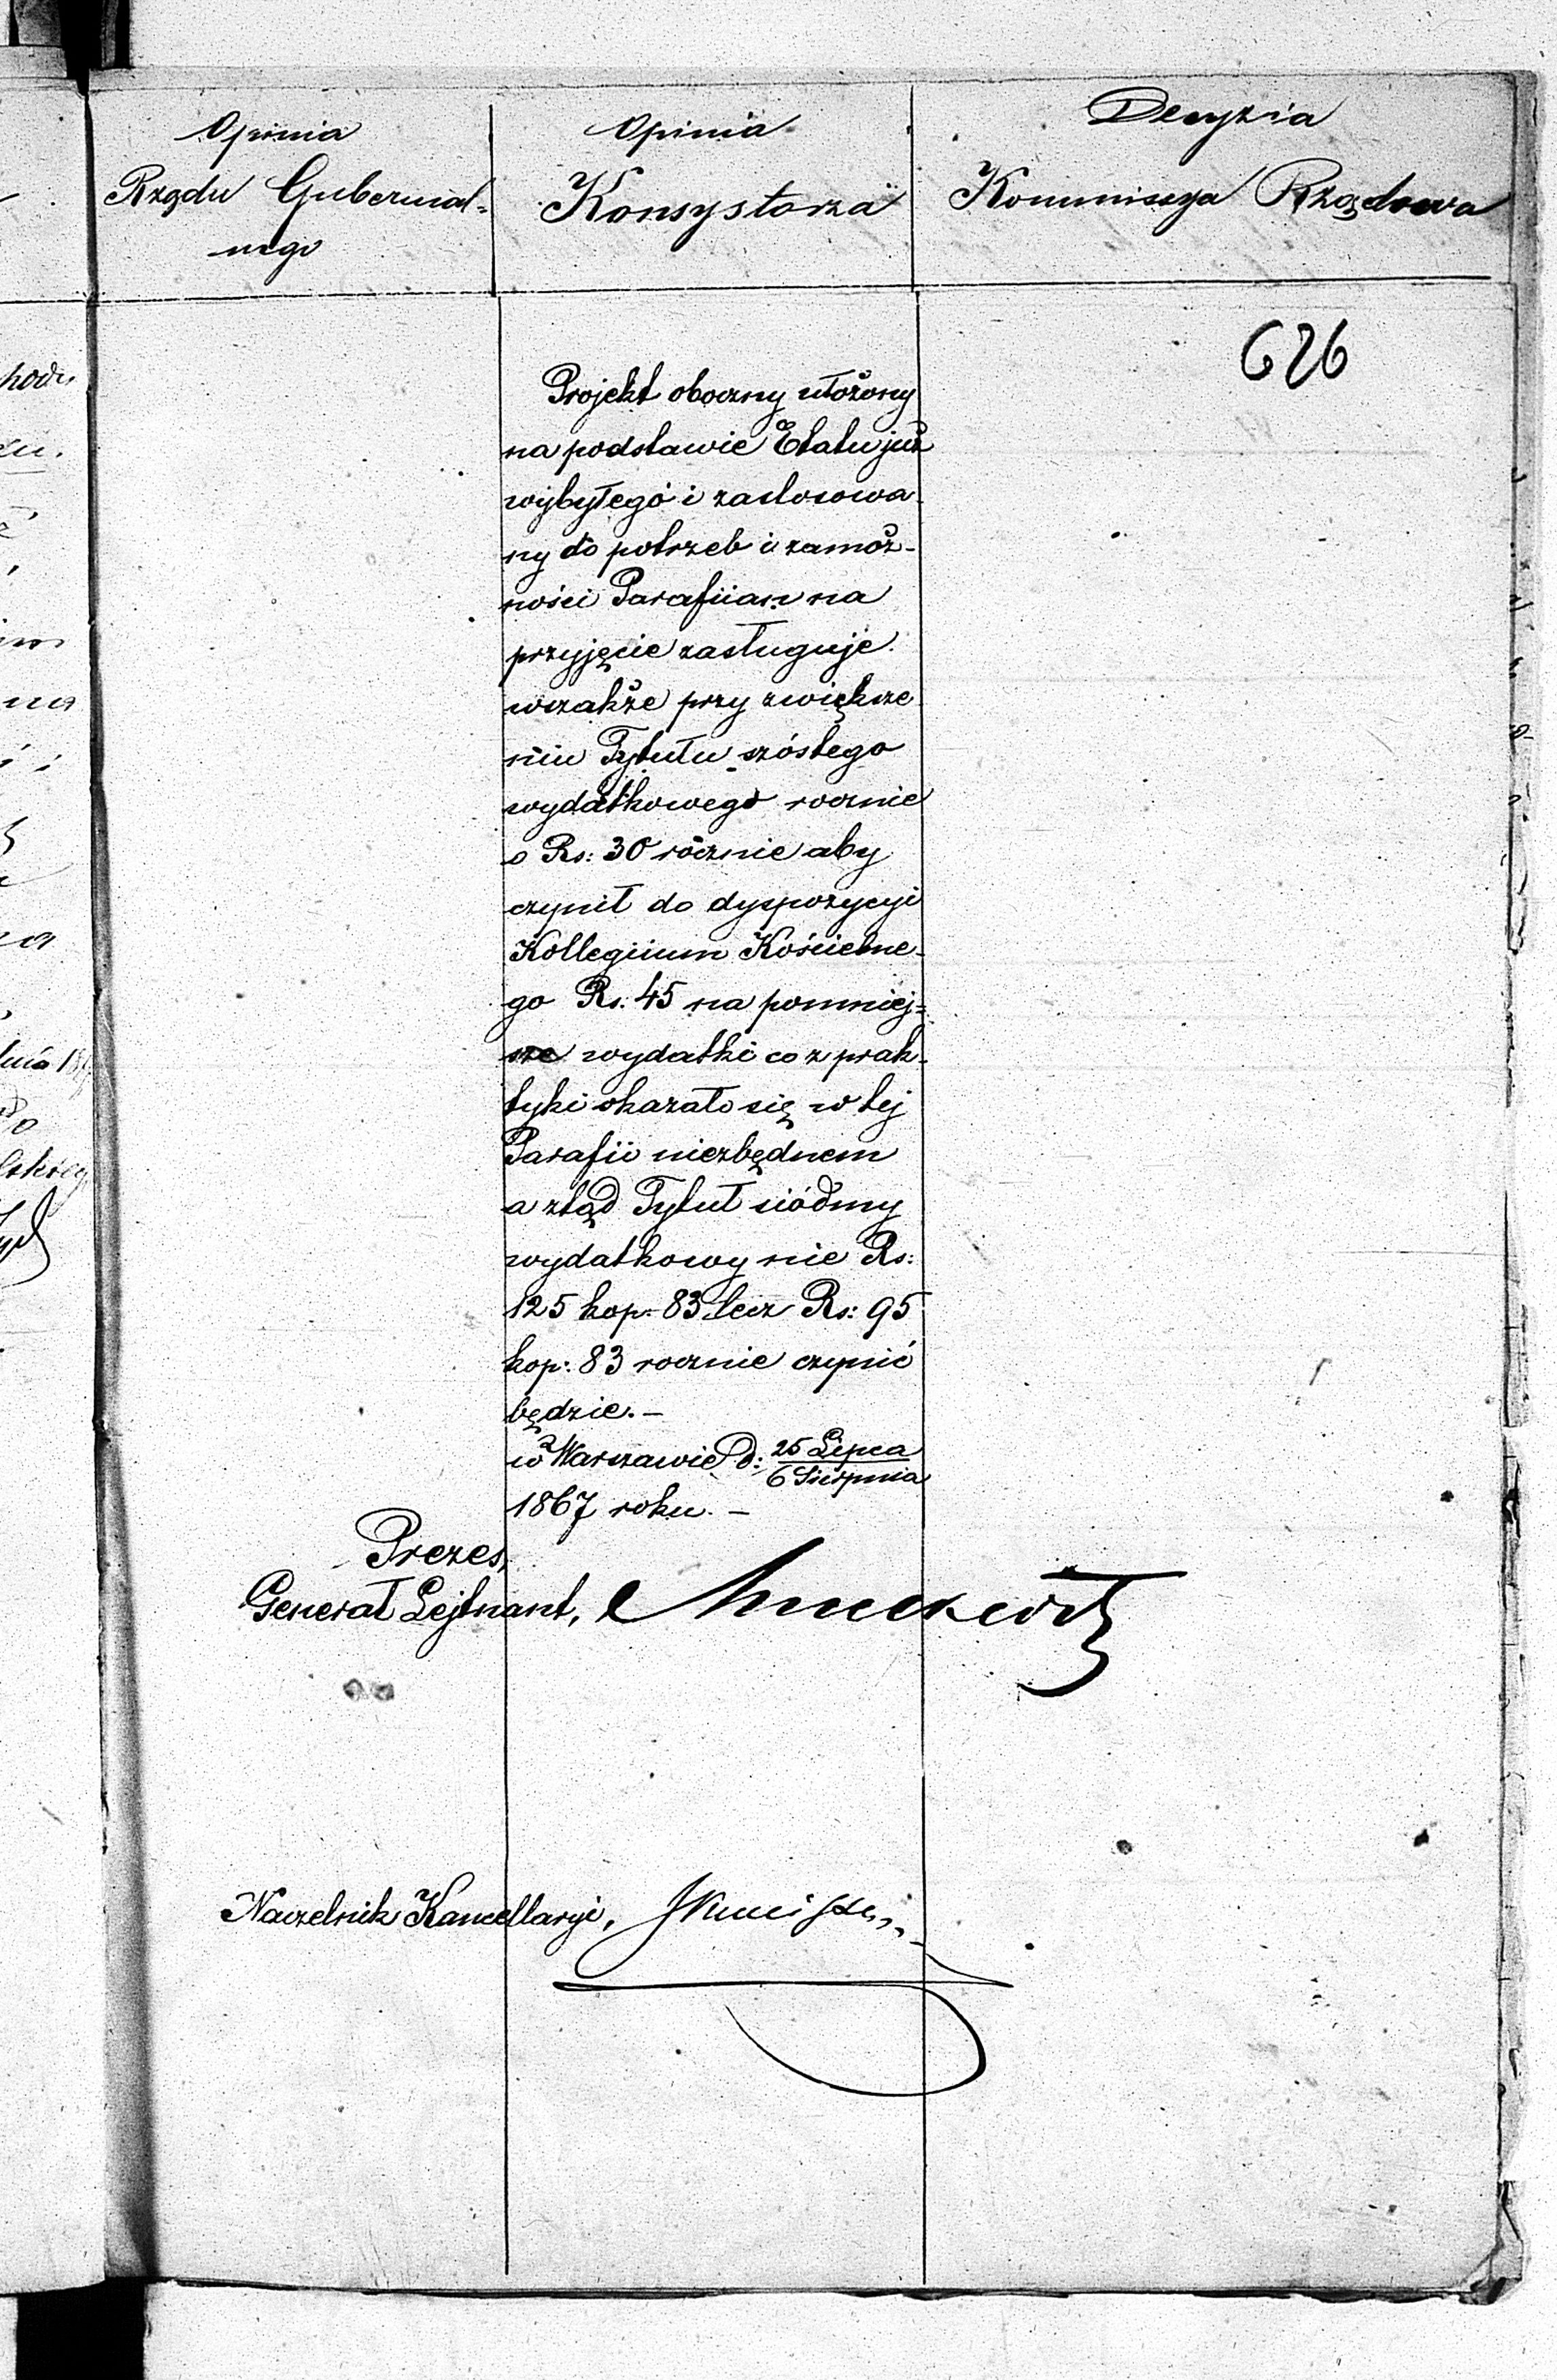 Opinia
Rządu Gubernial-
nego
Opinia
Konsystorza
Decyzia
Kommissya Rządowa
626
Projekt oboczny ułożony
na podstawie Etatu już
wybyłego i zastosowa-
ny do potrzeb i zamoż-
ności Parafiian na
przyjęcie zasługuje.
wszakże przy zwiększe
niu Tytułu szóstego
wydatkowego rocznie
o Rs: 30 rócznie aby
czynił do dyspozycyi
Kollegiium Kościelne-
go Rs. 45 na pomniej=
sze wydatki co z prak-
tyki okazało się w tej
Parafii niezbędnem
a ztąd Tytuł siódmy
wydatkowy nie Rs:
125 kop. 83 lecz Rs: 95
kop: 83 rocznie czynić
będzie. —
w Warszawie d: 25 Lipca
6 Sierpnia
1867 roku. —
Prezes,
Generał Lejtnant,
Naczelnik Kancellaryi,